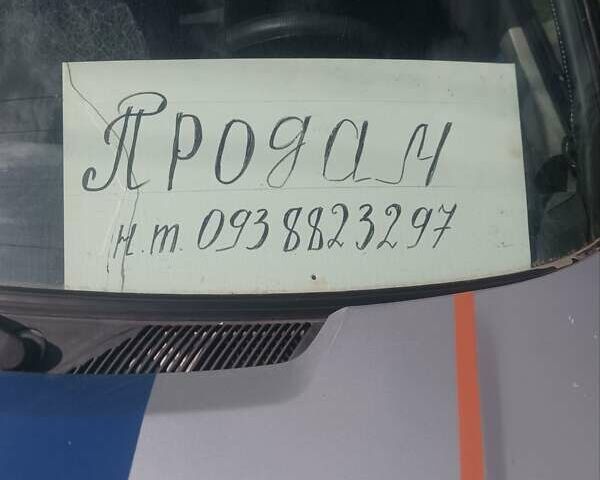 Продам
н.т. 0938823297